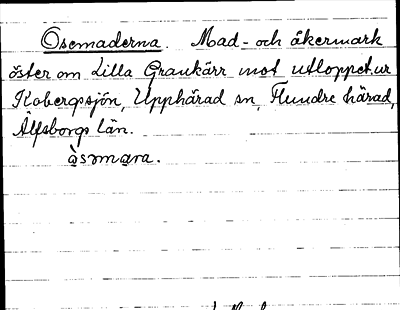 Osemaderna. Mad- och åkermark
öster om Lilla Grankärr mot utloppet ur
Kobergasjön, Upphärad sn, Flundre härad,
Älfsborgs län.
àsəmara.